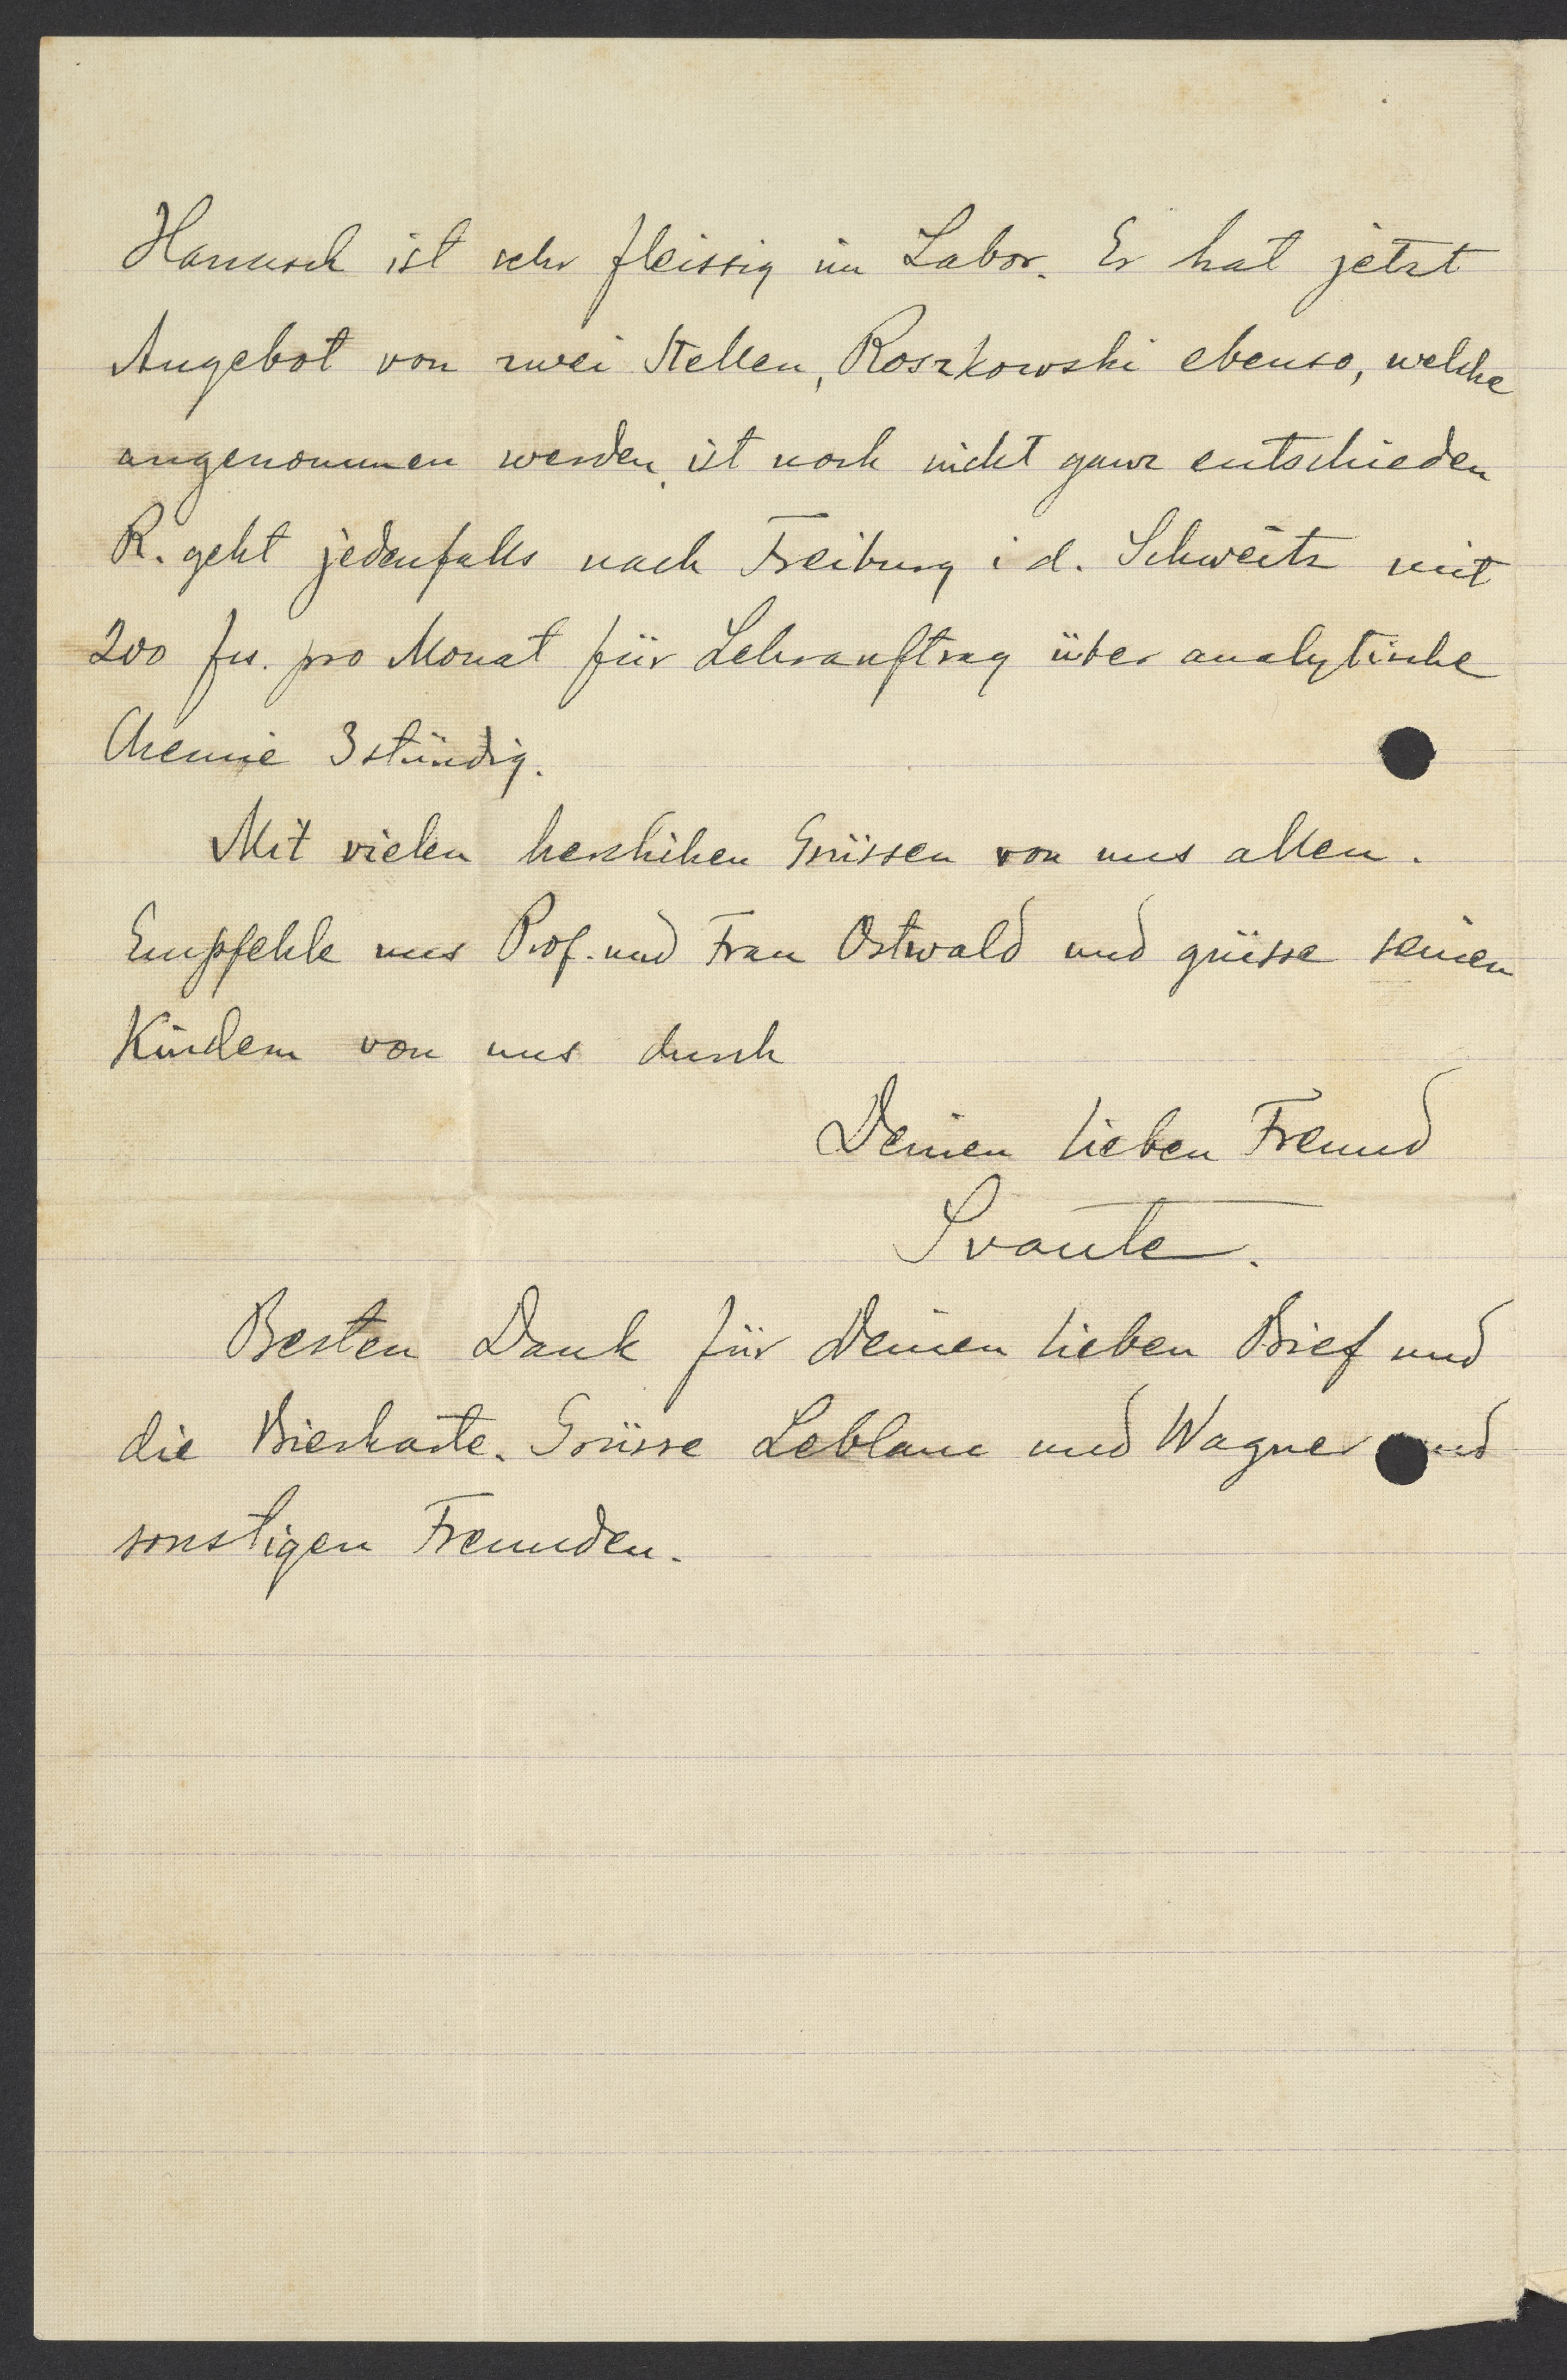 Hanusch ist sehr fleissig im Labor. Er hat jetzt
Angebot von zwei Stellen, Roszkowski ebenso, welche
angenommen werden, ist noch nicht ganz entschieden
R. geht jedenfalls nach Freiburg i d. Schweitz mit
200 frs. pro Monat für Lehrauftrag über analytische
Chemie 3stündig.
Mit vielen herzlichen Grüssen von uns allen.
Empfehle uns Prof. und Frau Ostwald und grüsse seinen
Kindern von uns durch
Deinen lieben Freund
Svante.
Besten Dank für Deinen lieben Brief und
die Bierkarte. Grüsse Leblanc und Wagner und
sonstigen Freunden.